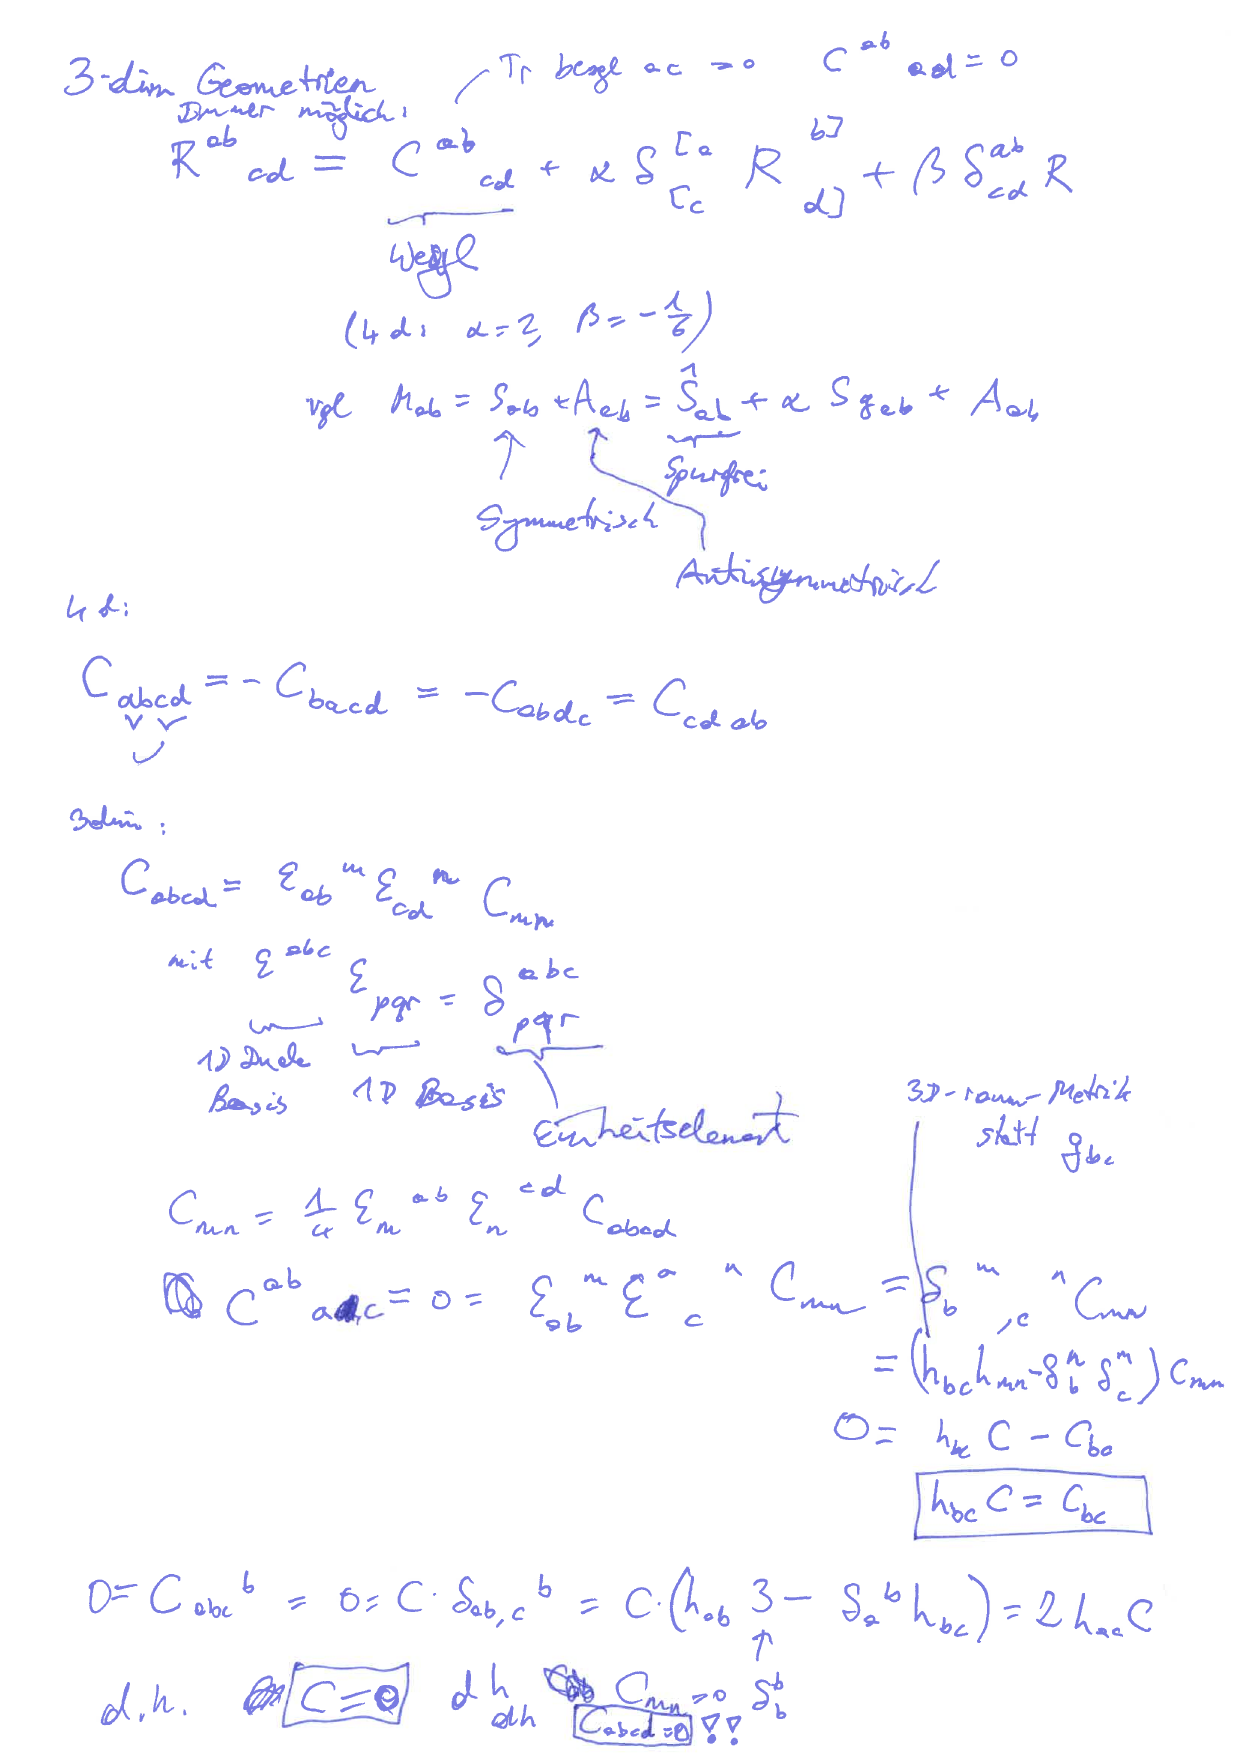 3-dim Geometrien
Tr bezgl ac → 0 C^{ab}_{ad} = 0
Immer möglich:
R^{ab}_{cd} = C^{ab}_{cd} + α δ^{[a}_{[c} R^{b]}_{d]} + β δ^{ab}_{cd} R
Weyl
(4d: α=2, β=-1/6)
vgl M_{ab} = S_{ab} + A_{ab} = Ŝ_{ab} + α S g_{ab} + A_{ab}
Spurfrei
Symmetrisch
Antisymmetrisch
4d:
C_{abcd} = -C_{bacd} = -C_{abdc} = C_{cdab}
3dim:
C_{abcd} = ε_{ab}^m ε_{cd}^n C_{mn}
mit ε^{abc} ε_{pqr} = δ^{abc}_{pqr}
1D Duale Basis
1D Basis
Einheitselement
3D-raum-Metrik
statt g_{bc}
C_{mn} = 1/4 ε_m^{ab} ε_n^{cd} C_{abcd}
C^{ab}_{ac} = 0 = ε_{ab}^m ε^a_c^n C_{mn} = δ_b^m_{,c}^n C_{mn}
= (h_{bc} h_{mn} - δ^n_b δ^m_c) C_{mn}
0 = h_{bc} C - C_{bc}
h_{bc} C = C_{bc}
0 = C_{abc}^b = 0 = C · δ_{ab,c}^b = C·(h_{ab} 3 - δ_a^b h_{bc}) = 2 h_{ac} C
d.h. C=0 dh C_{mn}=0 δ^b_b
dh C_{abcd}=0 !!